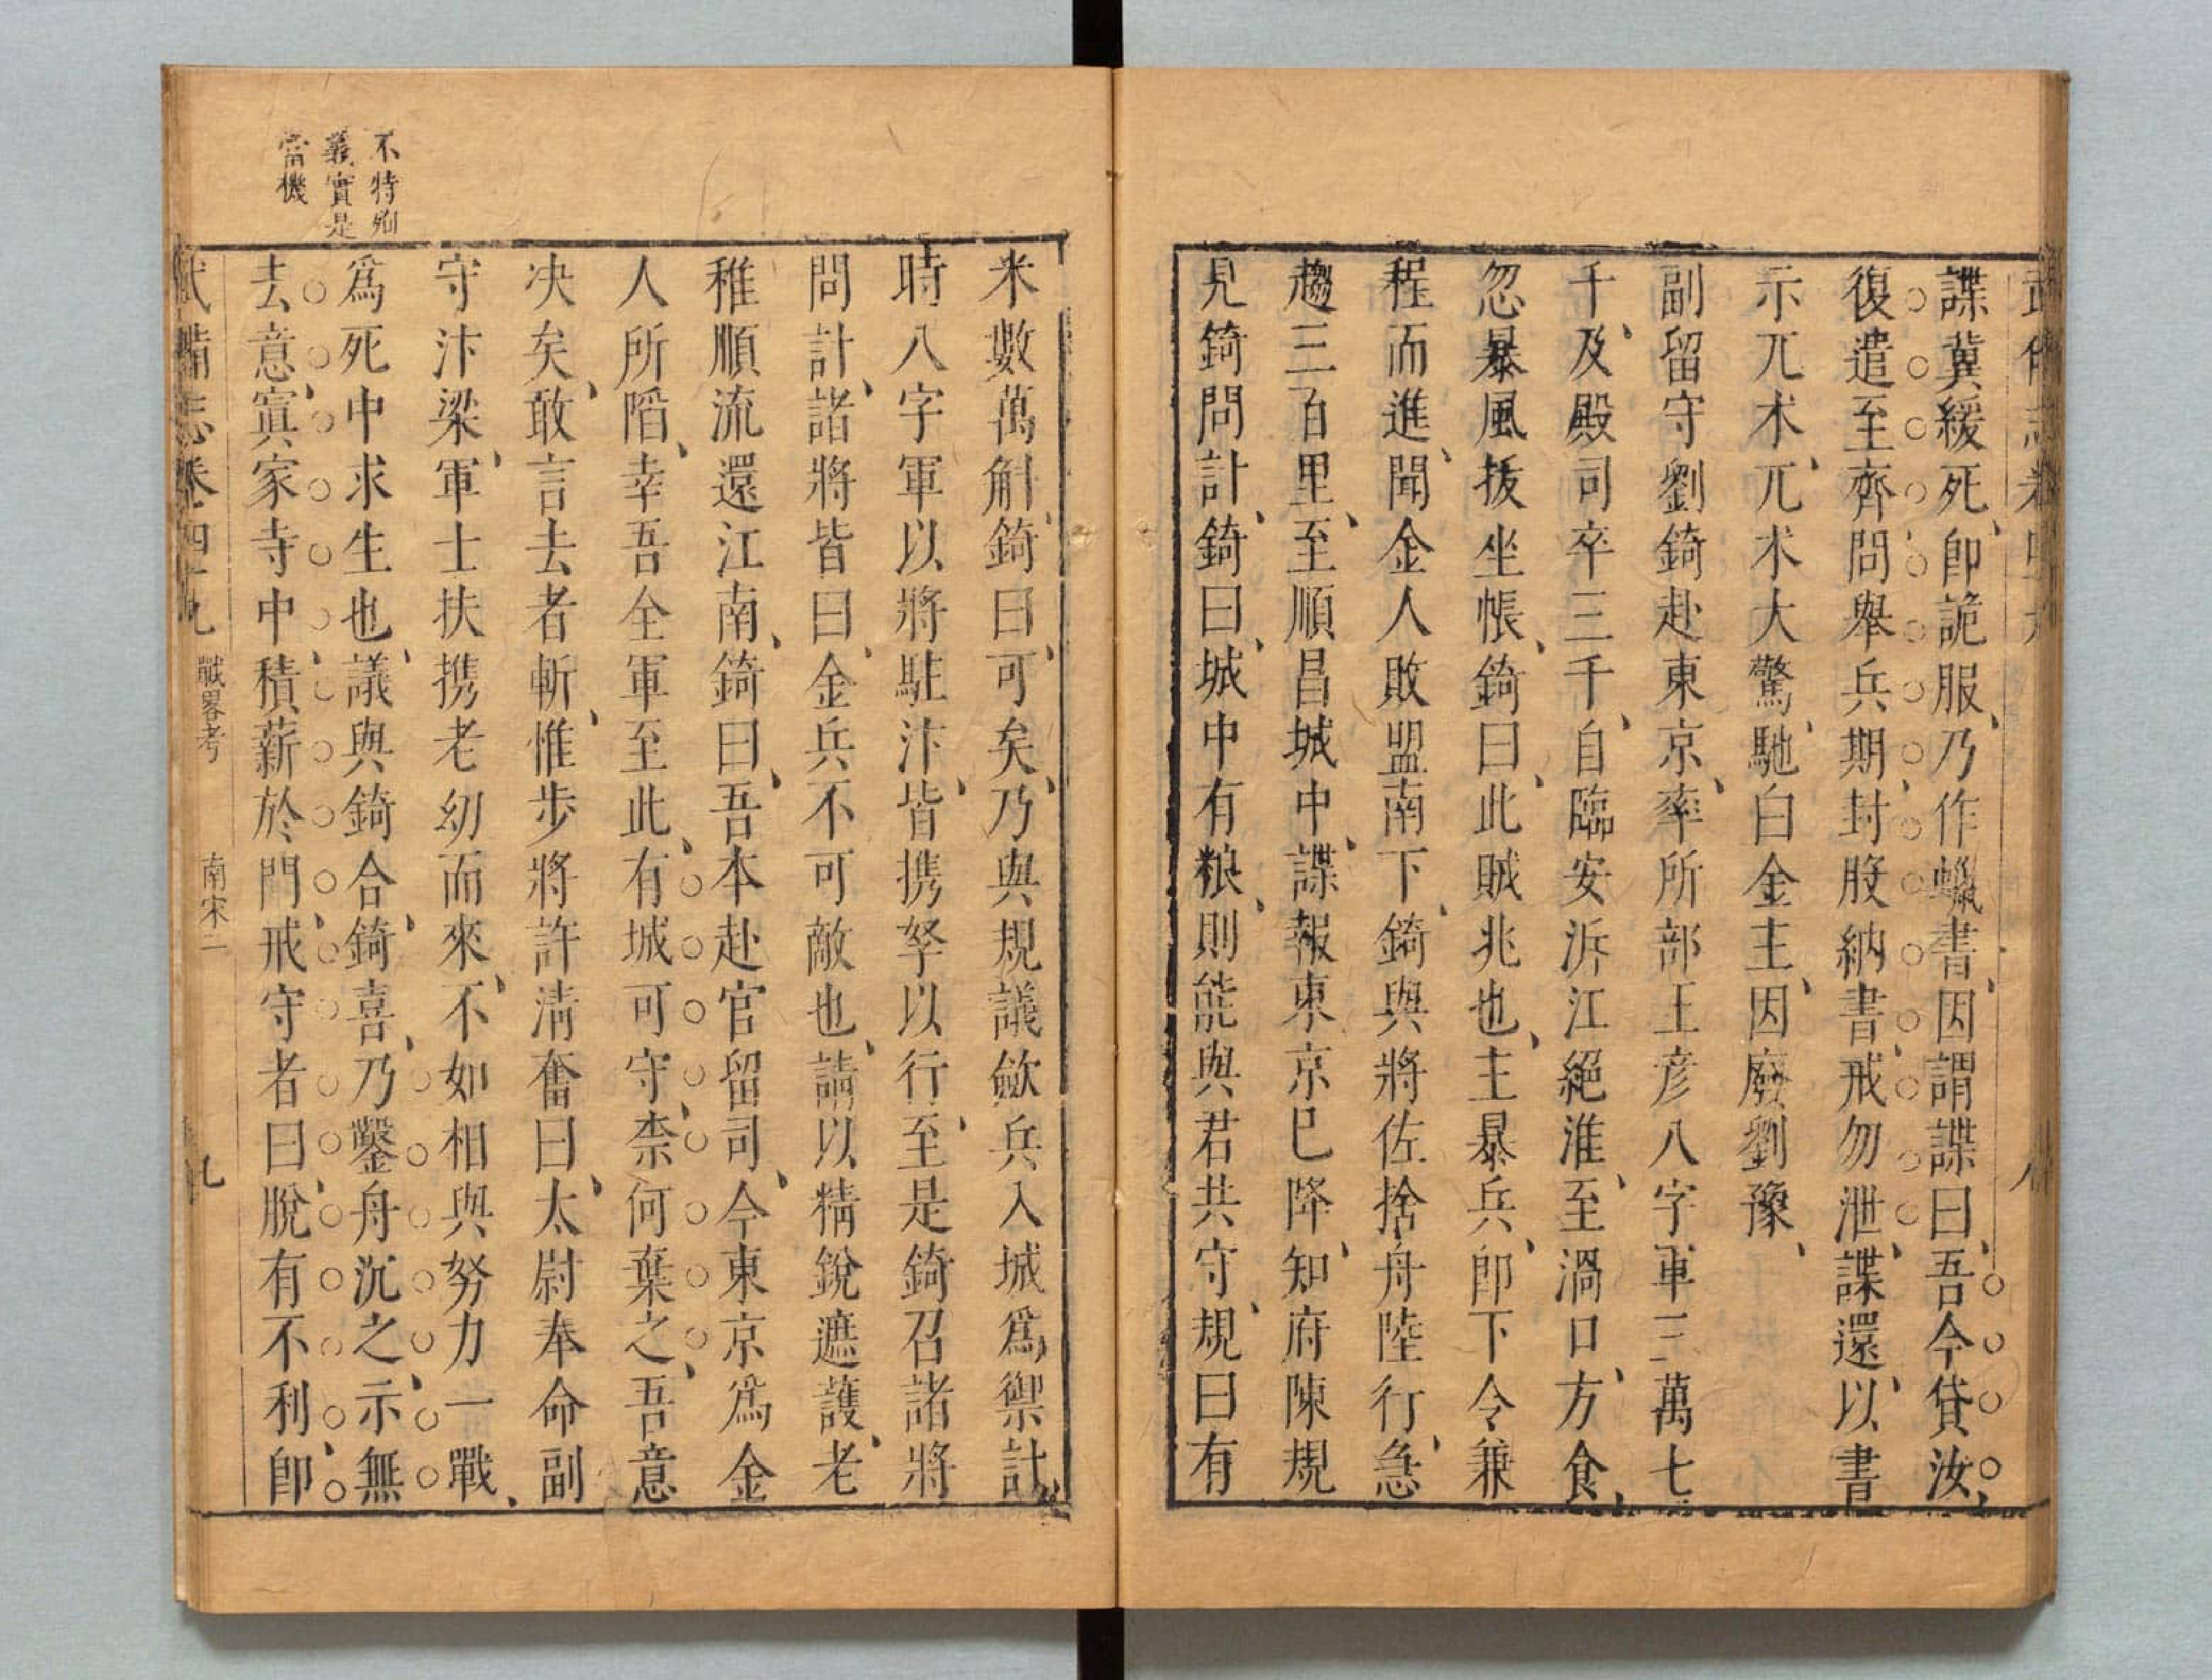 諜冀緩死卽詭服乃作蠟書因謂諜曰吾今貸汝
復遣至齊問舉兵期封股納書戒勿泄諜還以書
示兀术兀术大驚馳白金主因廢劉豫
副留守劉錡赴東京率所部王彥八字軍三萬七
千及殿司卒三千自臨安泝江絕淮至渦口方食
忽暴風拔坐帳錡曰此賊兆也主暴兵卽下令兼
程而進聞金人敗盟南下錡與將佐捨舟陸行急
趨三百里至順昌城中諜報東京已降知府陳規
見錡問計錡曰城中有粮則能與君共守規曰有
米數萬斛錡曰可矣乃與規議歛兵入城爲禦計
時八字軍以將駐汴皆携孥以行至是錡召諸將
問計諸將皆曰金兵不可敵也請以精銳遮護老
稚順流還江南錡曰吾本赴官留司今東京爲金
人所䧟幸吾全軍至此有城可守柰何葉之吾意
决矣敢言去者斬惟步將許淸奮曰太尉奉命副
守汴梁軍士扶携老幼而來不如相與努力一戰
爲死中求生也議與錡合錡喜乃鑿舟沉之示無
去意寘家寺中積薪於門戒守者曰脫有不利卽
不特殉
義實是
當機
武備志卷四十九 戰畧考 南宋一 九